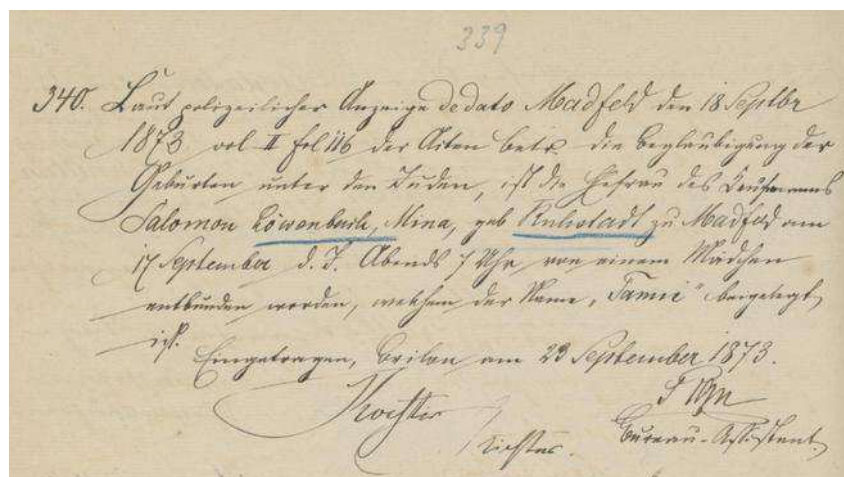 339
340. Laut polizeilicher Anzeige de dato Madfeld den 18 Septbr
1873 vol II fol 116 der Akten betr. die Beglaubigung der
Geburten unter den Juden, ist die Ehefrau des Kaufmanns
Salomon Löwenbach, Mina, geb. zu Madfeld am
17 September d. J. Abends 7 Uhr von einem Mädchen
entbunden worden, welchem der Name „ " beigelegt
ist.
Eingetragen, Brilon am 23 September 1873.
Richter.
Bureau-Assistent